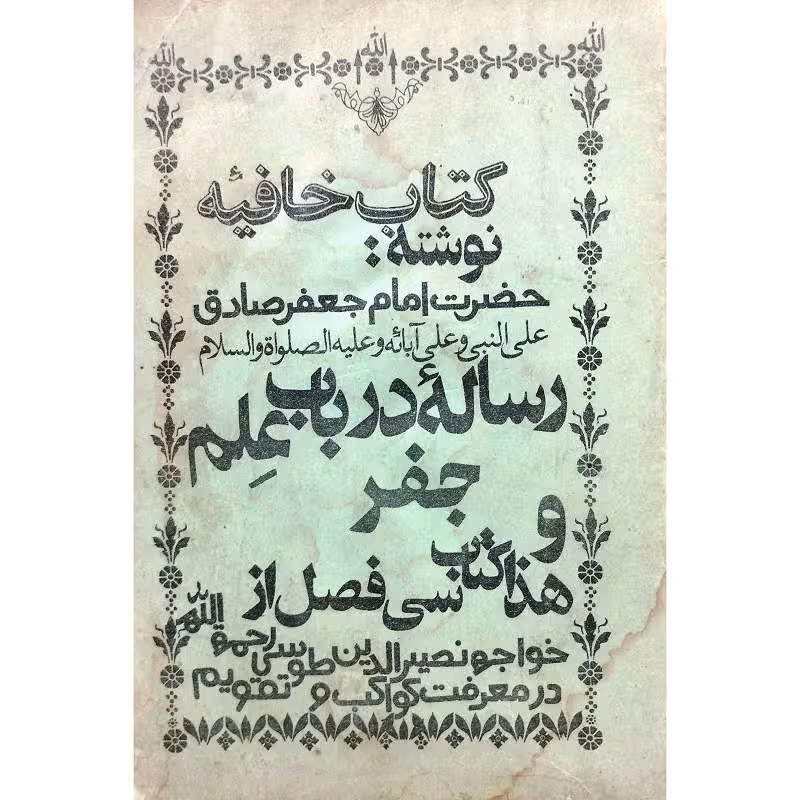 الله الله الله
کتاب خافیۀ
نوشته:
حضرت امام جعفر صادق
علی النبی و علی آبائه و علیه الصلواة والسلام
رسالۀ در باب علم
جفر
و
هذا کتاب سی فصل از
خواجه نصیرالدین طوسی رحمة الله
در معرفت کواکب و تقویم